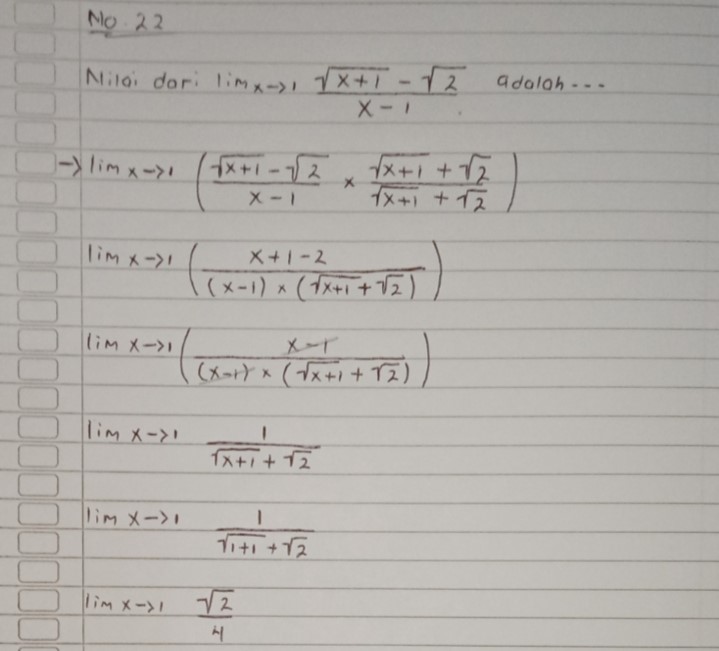 No. 22
Nilai dari lim x→1 (√(x+1) - √2)/(x-1) adalah...
→ lim x→1 ((√(x+1) - √2)/(x-1) × (√(x+1) + √2)/(√(x+1) + √2))
lim x→1 ((x+1-2)/((x-1) × (√(x+1) + √2)))
lim x→1 ((x-1)/((x-1) × (√(x+1) + √2)))
lim x→1 1/(√(x+1) + √2)
lim x→1 1/(√(1+1) + √2)
lim x→1 √2/4